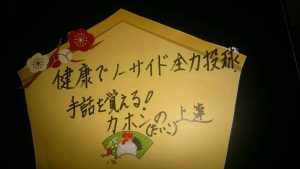 健康でノーサイド全力投球
手話を覚える!
カホンの上達
(たいこ)